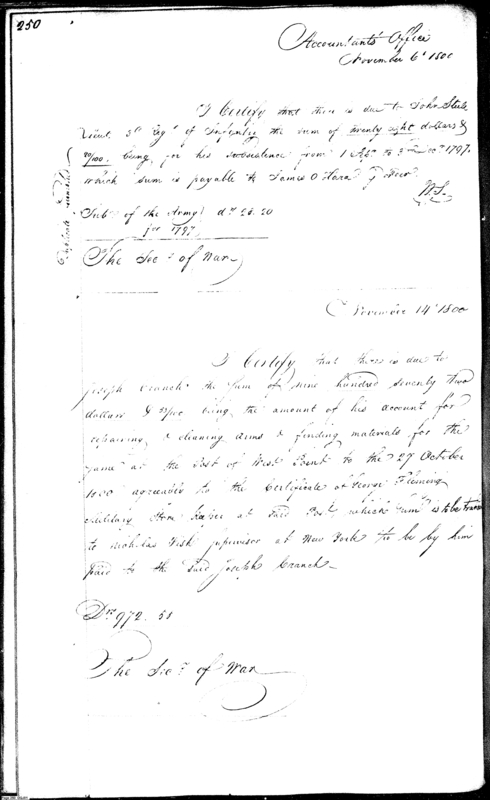 250
Accountants Office
November 6th 1800
I Certify that there is due to John Steele
Lieut. 3d Regt of Infantry the sum of twenty eight dollars &
20/100, being for his Subsistence from 1 to 1797.
which sum is payable to James O Hara
W.S.
Duplicate furnished
Subs of the Army dr 28.20
for 1797
The Secy of War
November 14th 1800
I Certify that there is due to
Joseph Cranch the sum of nine hundred seventy two
dollars & being the amount of his account for
repairing & cleaning arms & finding materials for the
same at the Post of West Point to the 27 October
1800 agreeably to the Certificate of George Fleming
Military Store Keeper at said Post which sum is to be
to Nicholas Fish supervisor at New York to be by him
paid to the said Joseph Cranch
Drs 972.
The Secy of War